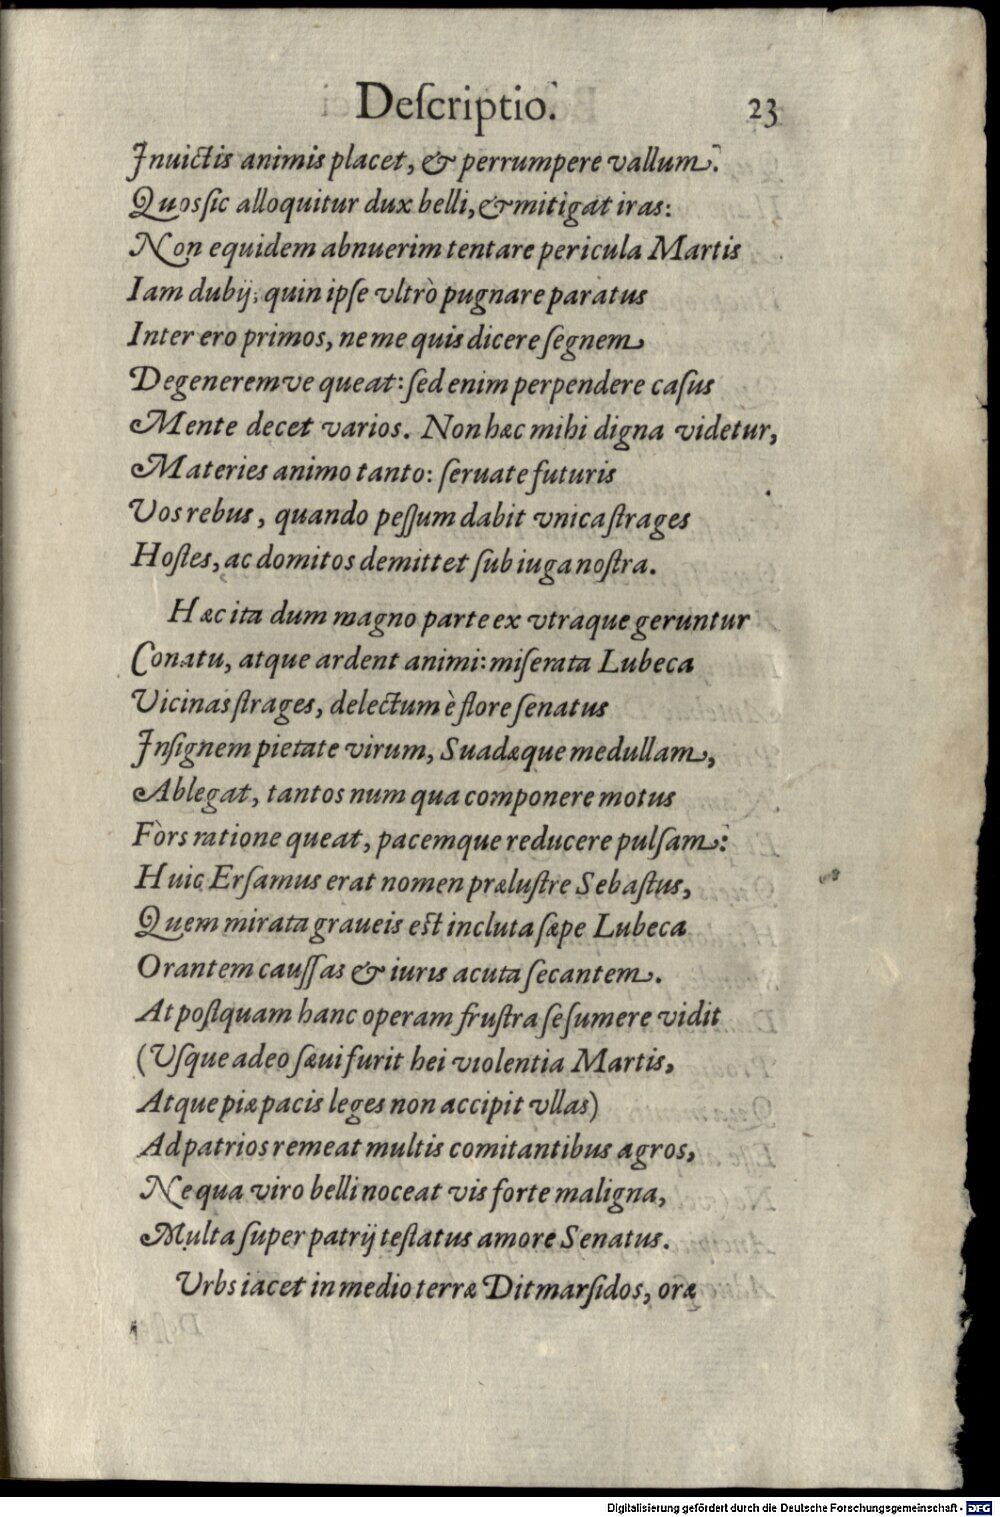 Deſcriptio. 23
Inuictis animis placet, & perrumpere vallum.
Quos ſic alloquitur dux belli, & mitigat iras:
Non equidem abnuerim tentare pericula Martis
Iam dubij; quin ipſe vltrò pugnare paratus
Inter ero primos, ne me quis dicere ſegnem
Degeneremve queat: ſed enim perpendere caſus
Mente decet varios. Non hæc mihi digna videtur,
Materies animo tanto: ſeruate futuris
Vos rebus, quando peſſum dabit vnica ſtrages
Hoſtes, ac domitos demittet ſub iuga noſtra.
Hæc ita dum magno parte ex vtraque geruntur
Conatu, atque ardent animi: miſerata Lubeca
Vicinas ſtrages, delectum è flore ſenatus
Inſignem pietate virum, Suadæque medullam,
Ablegat, tantos num qua componere motus
Fors ratione queat, pacemque reducere pulſam:
Huic Erſamus erat nomen præluſtre Sebaſtus,
Quem mirata graueis eſt incluta ſæpe Lubeca
Orantem cauſſas & iuris acuta ſecantem.
At poſtquam hanc operam fruſtra ſe ſumere vidit
(Vſque adeo ſæui furit hei violentia Martis,
Atque piæ pacis leges non accipit vllas)
Ad patrios remeat multis comitantibus agros,
Ne qua viro belli noceat vis forte maligna,
Multa ſuper patrij teſtatus amore Senatus.
Vrbs iacet in medio terræ Ditmarſidos, oræ
Digitalisierung gefördert durch die Deutsche Forschungsgemeinschaft - DFG